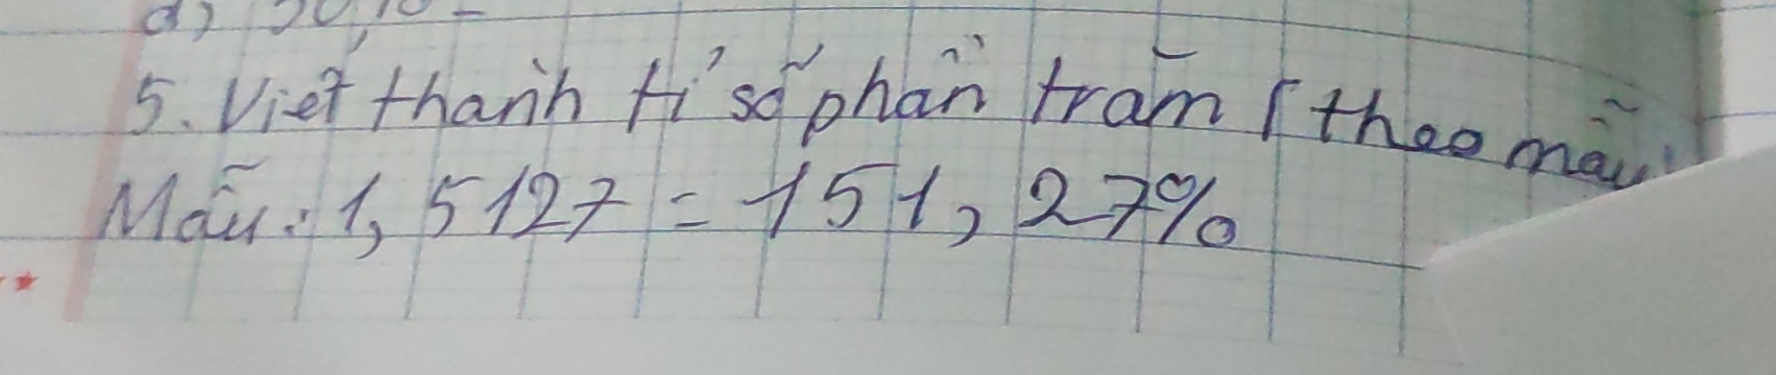 5. Viết thành tỉ số phần trăm (theo mẫu)
Mẫu: 1,5127 = 151,27%